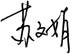 苏文娟